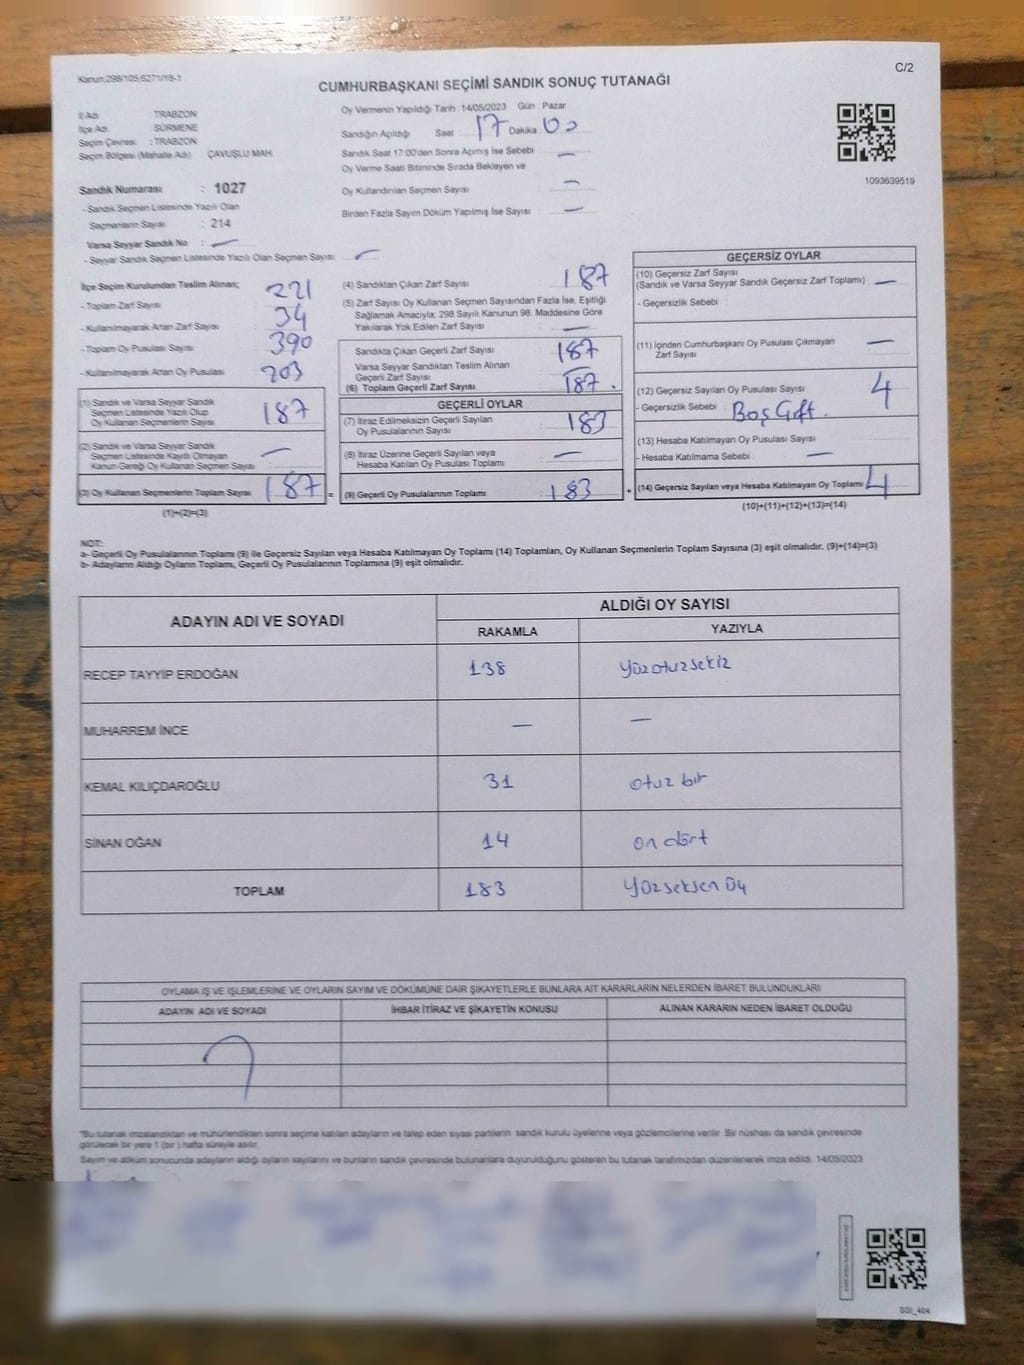 Kanun;298/105,6271/18-1
C/2
CUMHURBAŞKANI SEÇİMİ SANDIK SONUÇ TUTANAĞI
İl Adı : TRABZON
İlçe Adı : SÜRMENE
Seçim Çevresi : TRABZON
Seçim Bölgesi (Mahalle Adı) : ÇAVUŞLU MAH.
Oy Vermenin Yapıldığı Tarih :14/05/2023 Gün : Pazar
Sandığın Açıldığı Saat : 17 Dakika : 00
Sandık Saat 17:00'den Sonra Açımış İse Sebebi : —
Oy Verme Saati Bitiminde Sırada Bekleyen ve
Oy Kullandırılan Seçmen Sayısı : —
Birden Fazla Sayım Döküm Yapılmış İse Sayısı : —
1093639519
Sandık Numarası : 1027
- Sandık Seçmen Listesinde Yazılı Olan
Seçmenlerin Sayısı : 214
Varsa Seyyar Sandık No : —
- Seyyar Sandık Seçmen Listesinde Yazılı Olan Seçmen Sayısı: —
İlçe Seçim Kurulundan Teslim Alınan;
- Toplam Zarf Sayısı : 221
- Kullanılmayarak Artan Zarf Sayısı : 34
- Toplam Oy Pusulası Sayısı : 390
- Kullanılmayarak Artan Oy Pusulası : 203
(1) Sandık ve Varsa Seyyar Sandık
Seçmen Listesinde Yazılı Olup
Oy Kullanan Seçmenlerin Sayısı : 187
(2) Sandık ve Varsa Seyyar Sandık
Seçmen Listesinde Kayıtlı Olmayan
Kanun Gereği Oy Kullanan Seçmen Sayısı : —
(3) Oy Kullanan Seçmenlerin Toplam Sayısı : 187 =
(1)+(2)=(3)
(4) Sandıktan Çıkan Zarf Sayısı : 187
(5) Zarf Sayısı Oy Kullanan Seçmen Sayısından Fazla İse, Eşitliği
Sağlamak Amacıyla; 298 Sayılı Kanunun 98. Maddesine Göre
Yakılarak Yok Edilen Zarf Sayısı : —
Sandıkta Çıkan Geçerli Zarf Sayısı : 187
Varsa Seyyar Sandıktan Teslim Alınan
Geçerli Zarf Sayısı : —
(6) Toplam Geçerli Zarf Sayısı : 187.
GEÇERLİ OYLAR
(7) İtiraz Edilmeksizin Geçerli Sayılan
Oy Pusulalarının Sayısı : 183
(8) İtiraz Üzerine Geçerli Sayılan veya
Hesaba Katılan Oy Pusulası Toplamı : —
(9) Geçerli Oy Pusulalarının Toplamı : 183 +
GEÇERSİZ OYLAR
(10) Geçersiz Zarf Sayısı
(Sandık ve Varsa Seyyar Sandık Geçersiz Zarf Toplamı) : —
- Geçersizlik Sebebi :
(11) İçinden Cumhurbaşkanı Oy Pusulası Çıkmayan
Zarf Sayısı : —
(12) Geçersiz Sayılan Oy Pusulası Sayısı : 4
- Geçersizlik Sebebi : Boş Çift.
(13) Hesaba Katılmayan Oy Pusulası Sayısı
- Hesaba Katılmama Sebebi : —
(14) Geçersiz Sayılan veya Hesaba Katılmayan Oy Toplamı : 4
(10)+(11)+(12)+(13)=(14)
NOT:
a- Geçerli Oy Pusulalarının Toplamı (9) ile Geçersiz Sayılan veya Hesaba Katılmayan Oy Toplamı (14) Toplamları, Oy Kullanan Seçmenlerin Toplam Sayısına (3) eşit olmalıdır. (9)+(14)=(3)
b- Adayların Aldığı Oyların Toplamı, Geçerli Oy Pusulalarının Toplamına (9) eşit olmalıdır.
ADAYIN ADI VE SOYADI
ALDIĞI OY SAYISI
RAKAMLA YAZIYLA
RECEP TAYYİP ERDOĞAN 138 Yüzotuzsekiz
MUHARREM İNCE — —
KEMAL KILIÇDAROĞLU 31 otuz bir
SİNAN OĞAN 14 on dört
TOPLAM 183 Yüzseksen üç
OYLAMA İŞ VE İŞLEMLERİNE VE OYLARIN SAYIM VE DÖKÜMÜNE DAİR ŞİKAYETLERLE BUNLARA AİT KARARLARIN NELERDEN İBARET BULUNDUKLARI
ADAYIN ADI VE SOYADI İHBAR İTİRAZ VE ŞİKAYETİN KONUSU ALINAN KARARIN NEDEN İBARET OLDUĞU
*Bu tutanak imzalandıktan ve mühürlendikten sonra seçime katılan adayların ve talep eden siyasi partilerin sandık kurulu üyelerine veya gözlemcilerine verilir. Bir nüshası da sandık çevresinde
görülecek bir yere 1 (bir ) hafta süreyle asılır.
Sayım ve döküm sonucunda adayların aldığı oyların sayılarını ve bunların sandık çevresinde bulunanlara duyurulduğunu gösteren bu tutanak tarafımızdan düzenlenerek imza edildi. 14/05/2023
SSI_404